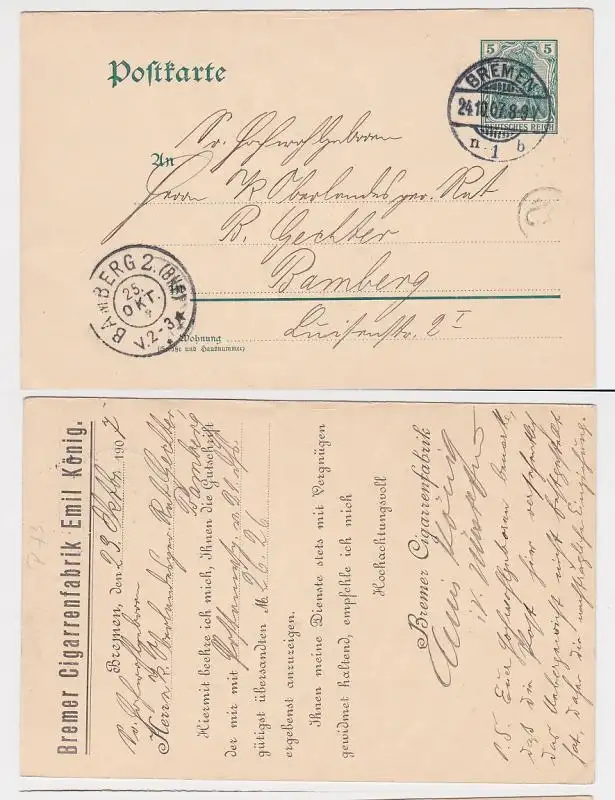 Postkarte
5 5
DEUTSCHES REICH
BREMEN
24.10.07. 8-9 V
n 1 b
Sr. Hochwohlgeboren
An
Herrn K. Oberlandesger. Rat
R. Gechter
in
Bamberg
Wohnung
(Straße und Hausnummer)
Luisenstr. 2 I
BAMBERG 2.
25.
OKT.
V.2-3
Bremer Cigarrenfabrik Emil König.
Bremen, den 23 Oktbr. 1907
Sr. Hochwohlgeboren
Herrn K. Oberlandesger. Rat Gechter
Bamberg
Hiermit beehre ich mich, Ihnen die Gutschrift
der mir mit Postanweisg. v. 21. ds.
gütigst übersandten M. 26.26
ergebenst anzuzeigen.
Ihnen meine Dienste stets mit Vergnügen
gewidmet haltend, empfehle ich mich
Hochachtungsvoll
Bremer Cigarrenfabrik
Emil König
i.V.
P.S. Euer Hochwohlgeboren bemerke,
dass die Post hier versehentlich
das Uebergewicht nicht festgestellt
hat, daher die nachträgliche Einziehung.